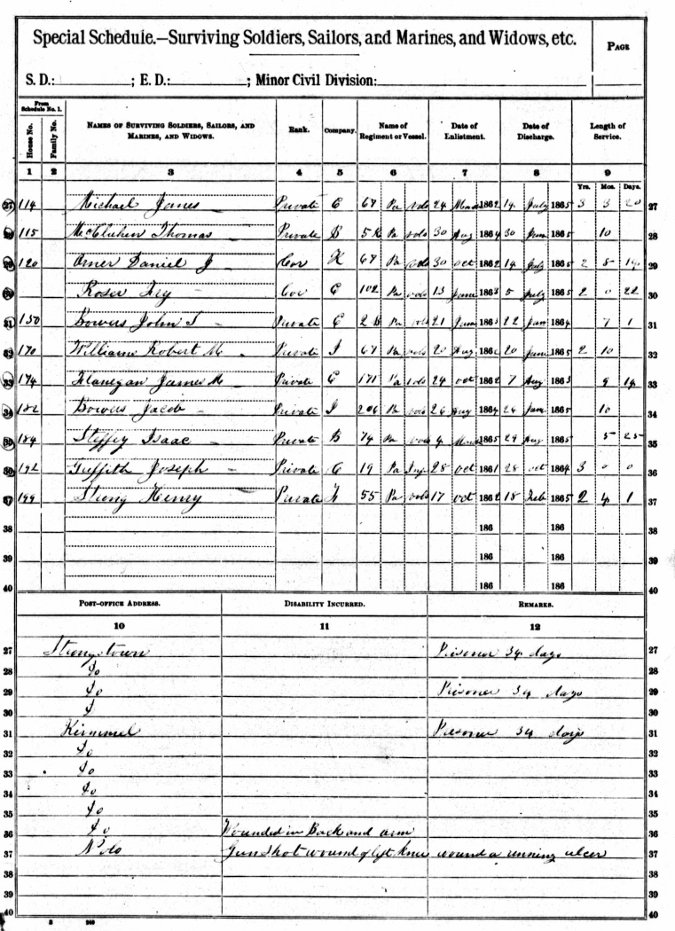 Special Schedule.—Surviving Soldiers, Sailors, and Marines, and Widows, etc.
PAGE
S. D.: ; E. D.: ; Minor Civil Division:
From Schedule No. 1.
House No.
Family No.
NAMES OF SURVIVING SOLDIERS, SAILORS, AND MARINES, AND WIDOWS.
Rank.
Company.
Name of Regiment or Vessel.
Date of Enlistment.
Date of Discharge.
Length of Service.
1 2 3 4 5 6 7 8 9
Yrs. Mos. Days.
27 114 Michael James Private C 67 Pa vols 24 1862 14 July 1865 3 3 20 27
115 Thomas Private Pa vols 30 Aug 1864 30 June 1865 10 28
120 Daniel J Cor K 67 Pa vols 30 oct 1862 14 July 1865 2 8 14 29
Cor C 102 Pa vols 13 June 1863 5 July 1865 2 0 22 30
31 150 Bowers John T Private C Pa vols 21 186 22 Jan 1864 7 1 31
32 170 Williams Robert M Private I 67 Pa vols 20 Aug 186 20 June 1865 2 10 32
33 174 Flanegan James M Private C 171 Pa vols 24 oct 1862 7 Aug 1863 9 14 33
34 182 Bowers Jacob Private I 206 Pa vols 26 Aug 1864 26 June 1865 10 34
35 184 Steffey Isaac Private B 74 Pa vols 4 1865 29 Aug 1865 5 25 35
36 192 Griffith Joseph Private C 19 Pa 28 oct 1861 28 oct 1864 3 0 0 36
37 199 Henry Private 55 Pa vols 17 oct 1862 18 Feb 1865 2 4 1 37
38 186 186 38
39 186 186 39
40 186 186 40
POST-OFFICE ADDRESS.
DISABILITY INCURRED.
REMARKS.
10 11 12
27 Strongstown Prisoner 34 days 27
28 do 28
29 do Prisoner 34 days 29
30 30
31 Kimmel Prisoner 34 days 31
32 do 32
33 do 33
34 do 34
35 do 35
36 do Wounded in Back and arm 36
37 do Gun Shot wound of left knee wound a running ulcer 37
38 38
39 39
40 40